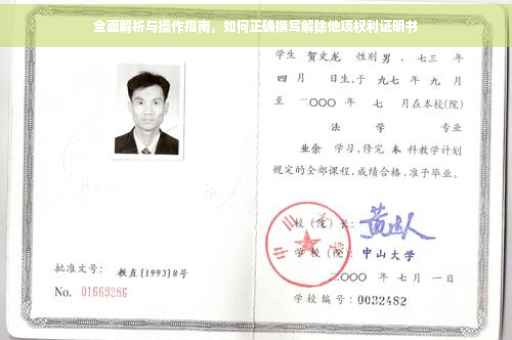 全面解析与操作指南，如何正确撰写解除他项权利证明书
学生 贺文龙 性别 男 、七三 年
四 月 日生,于 九七 年 九 月
至 二〇〇〇 年 七 月在本校(院)
法 学 专业
业余 学习,修完 本 科教学计划
规定的全部课程,成绩合格,准予毕业。
校 (院) 长:
学 校 (院): 中山大学
二〇〇〇 年 七 月 一 日
学校编号: 0032482
批准文号: 教直[1993]8号
No. 01669286